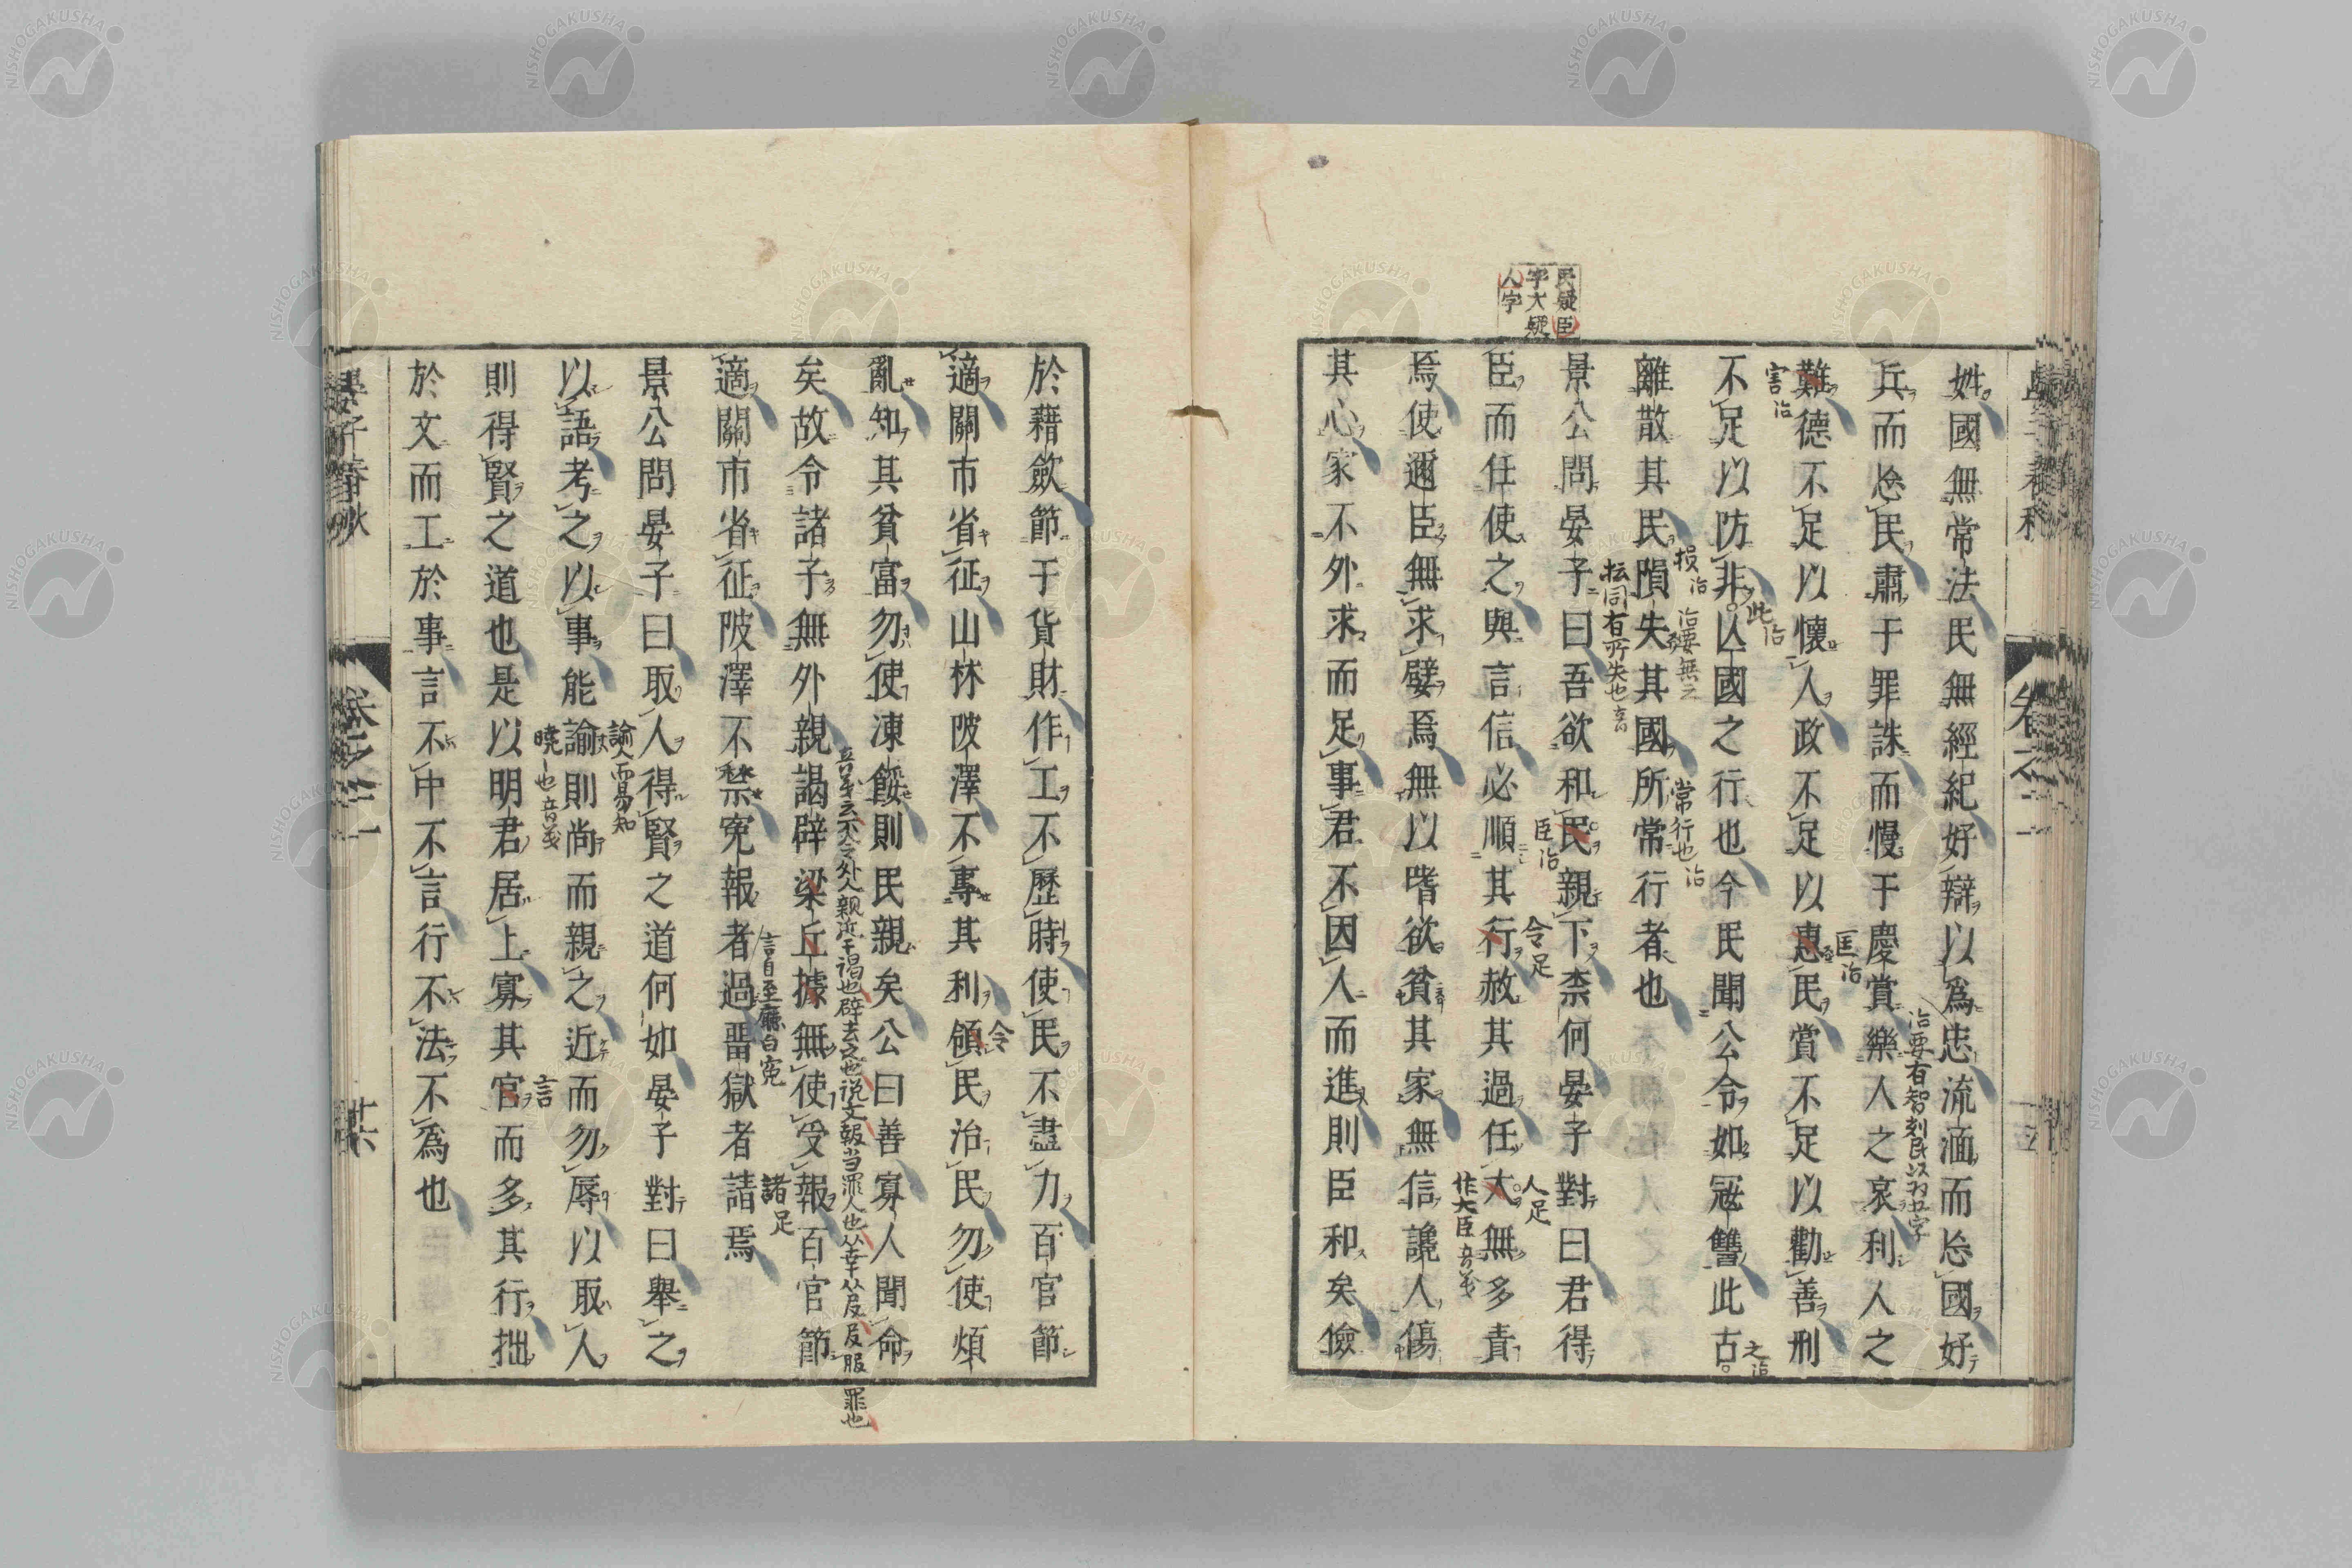 姓國無常法民無經紀好辯以爲忠流湎而忘國好
兵而忘民肅于罪誅而慢于慶賞樂人之哀利人之
難德不足以懷人政不足以惠民賞不足以勸善刑
不足以防非亾國之行也今民聞公令如寇讐此古
離散其民隕失其國所常行者也
景公問晏子曰吾欲和民親下柰何晏子對曰君得
臣而任使之與言信必順其行赦其過任大無多責
焉使邇臣無求嬖焉無以嗜欲貧其家無信讒人傷
其心家不外求而足事君不因人而進則臣和矣儉
民疑臣
字大疑
人字
治要有智刻民以爲
匡治
害治
此治
之治
损治
治要無之
常行也治
抎同有所失也
臣治
令足
人足
作大臣音義
於藉斂節于貨財作工不歷時使民不盡力百官節
適關市省征山林陂澤不專其利領民治民勿使煩
亂知其貧富勿使凍餒則民親矣公曰善寡人聞命
矣故令諸子無外親謁辟梁丘據無使受報百官節
適關市省征陂澤不禁冤報者過畱獄者請焉
景公問晏子曰取人得賢之道何如晏子對曰舉之
以語考之以事能諭則尚而親之近而勿辱以取人
則得賢之道也是以明君居上寡其官而多其行拙
於文而工於事言不中不言行不法不爲也
令
諸足
言
曉也音義
晏子春秋
卷之三
廿六
NISHOGAKUSHA